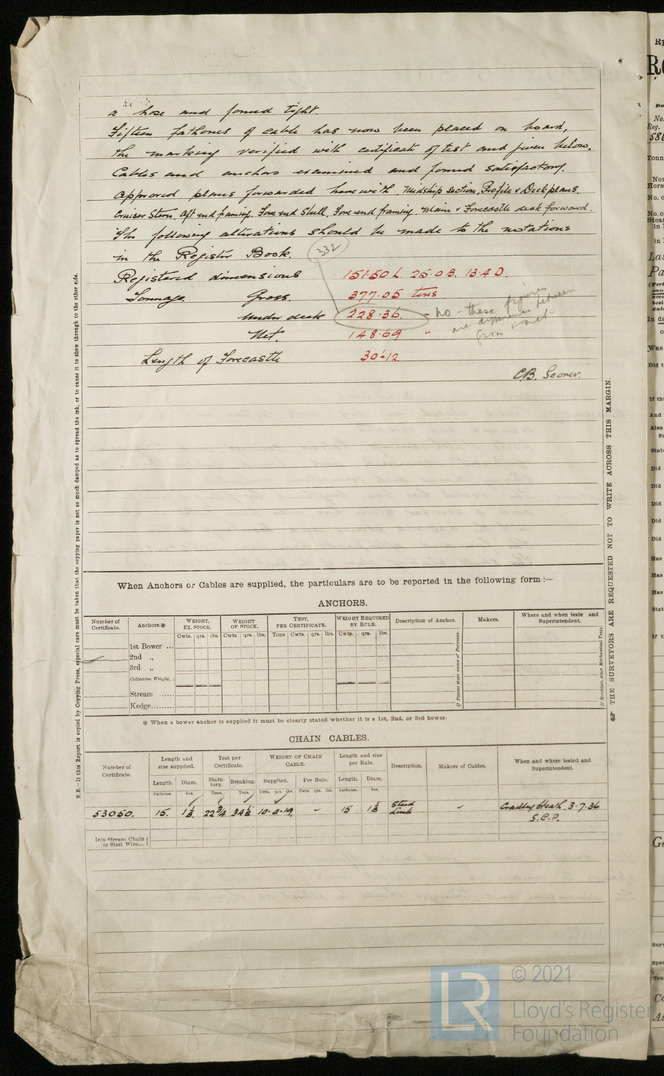 a hose and found tight.
Fifteen fathoms of cable has now been placed on board,
the marking verified with certificate of test and given below.
Cables and anchors examined and found satisfactory.
Approved plans forwarded herewith. Midship section, Profile & Deck plans,
Cruiser Stern, Aft end framing, Fore end Shell, Fore end framing, Main & Forecastle deck forward.
The following alterations should be made to the notations
in the Register Book.
332
Registered dimensions 151.50 L 25.0 B. 13.4 D.
Tonnage. Gross. 377.05 tons
Under deck 228.36. " no - these figures are difference between gross & net.
Net. 148.69 "
Length of Forecastle 30'-12
C.B.
When Anchors or Cables are supplied, the particulars are to be reported in the following form :—
ANCHORS.
Number of Certificate. Anchors.* WEIGHT, EX. STOCK. WEIGHT OF STOCK. TEST, PER CERTIFICATE. WEIGHT REQUIRED BY RULE. Description of Anchor. Makers. Where and when tests and Superintendent.
Cwts. qrs. lbs. Cwts. qrs. lbs. Tons Cwts. qrs. lbs. Cwts. qrs. lbs.
1st Bower ...
2nd „
3rd „
Collective Weight.
Stream ......
Kedge.........
* When a bower anchor is supplied it must be clearly stated whether it is a 1st, 2nd, or 3rd bower.
CHAIN CABLES.
Number of Certificate. Length and size supplied. Test per Certificate. WEIGHT OF CHAIN CABLE. Length and size per Rule. Description. Makers of Cables. When and where tested and Superintendent.
Length. Diam. Statutory. Breaking. Supplied. Per Rule. Length. Diam.
Fathoms Ins. Tons. Tons. Cwts. qrs. lbs. Cwts. qrs. lbs. Fathoms. Ins.
53050. 15. 10-0-19 - 15 Stud Link " Cradley Heath. 3-7-36
S.C.P.
Iron Stream Chain or Steel Wire...
N.B.—If this Report is copied by Copying Press, especial care must be taken that the copying paper is not so much damped as to spread the ink, or to cause it to show through to the other side.
THE SURVEYORS ARE REQUESTED NOT TO WRITE ACROSS THIS MARGIN.
LR
© 2021
Lloyd's Register
Foundation